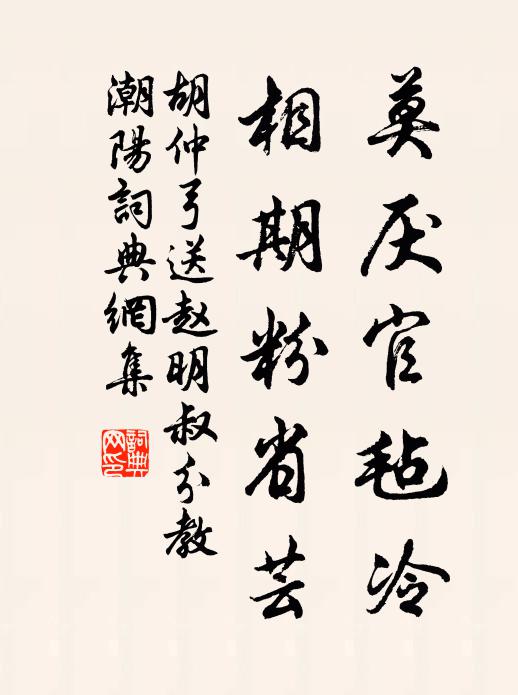 莫厌官毡冷
相期粉省芸
胡仲弓送赵明叔分教
潮陽詞典網集
詞典
网印